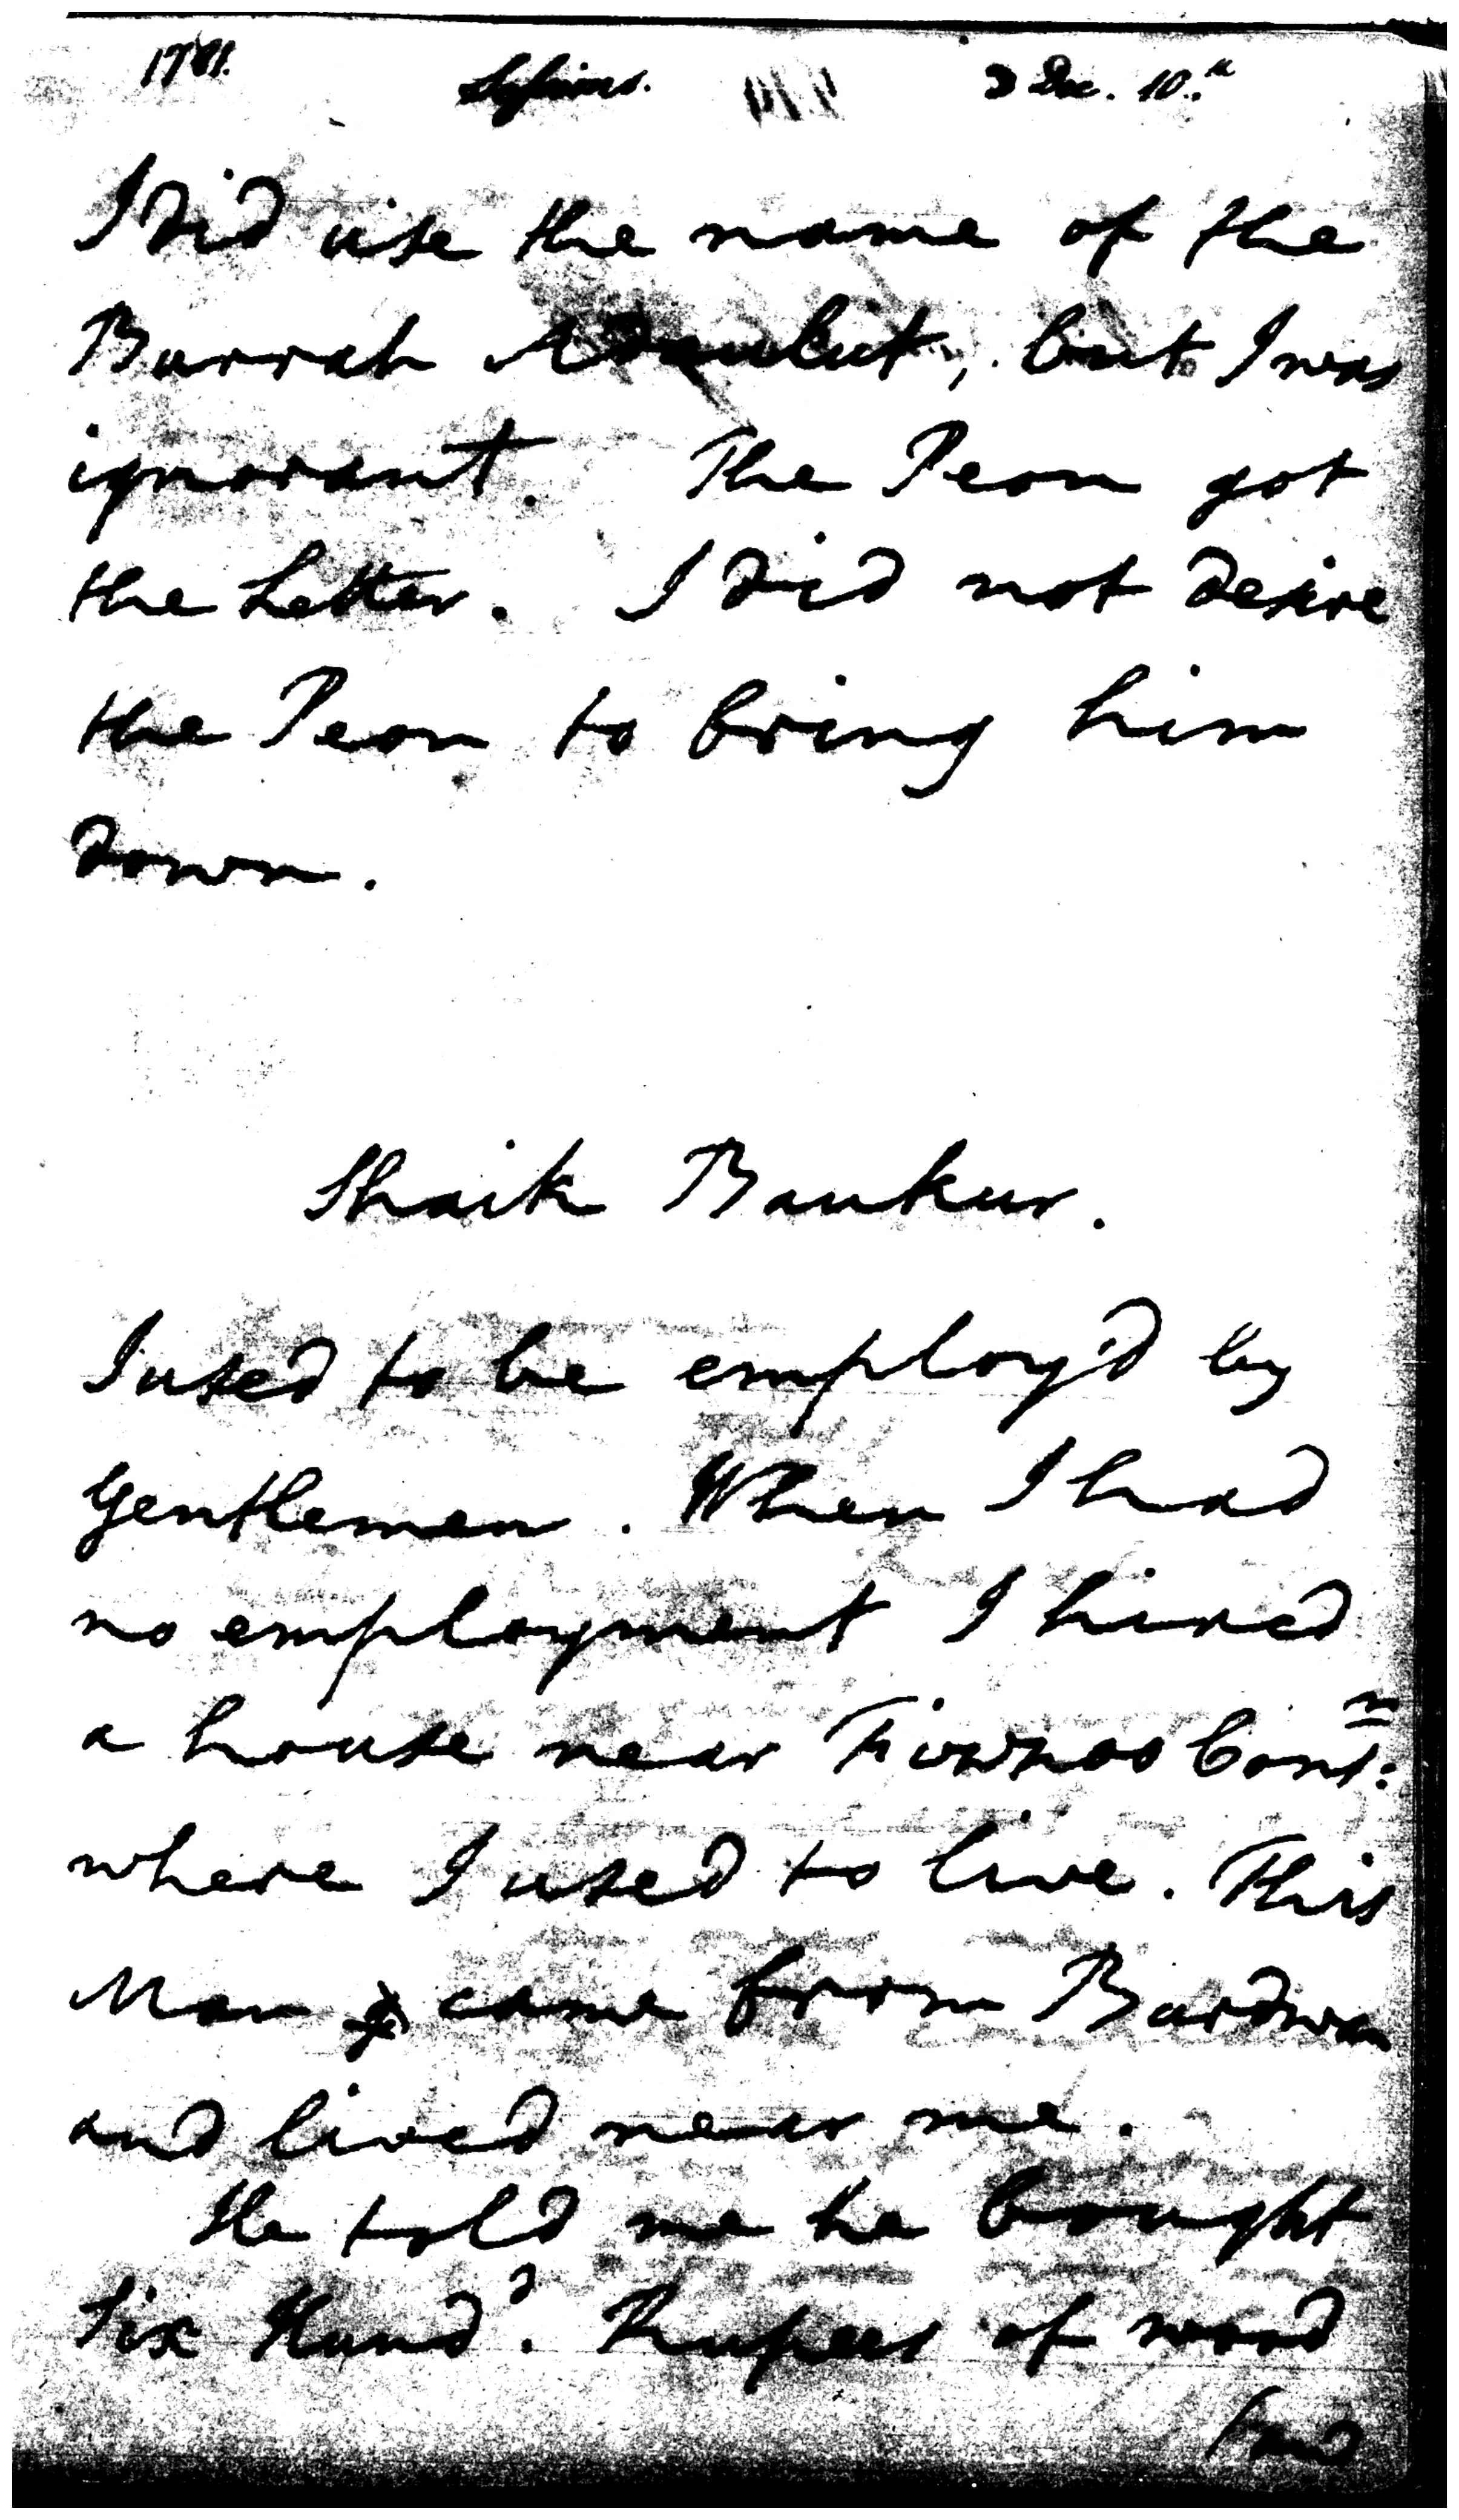 1781. Sessions. Dec. 10.th
I did use the name of the
Burrah Adaulut, but I was
ignorant. The Peon got
the Letter. I did not desire
the Peon to bring him
down.
Shaik Baukur.
I used to be employ'd by
Gentlemen. When I had
no employment I hired
a house near
where I used to live. This
Man came from Burdwan
and lived near me.
He told me he bought
six Hund.d Rupees of wood